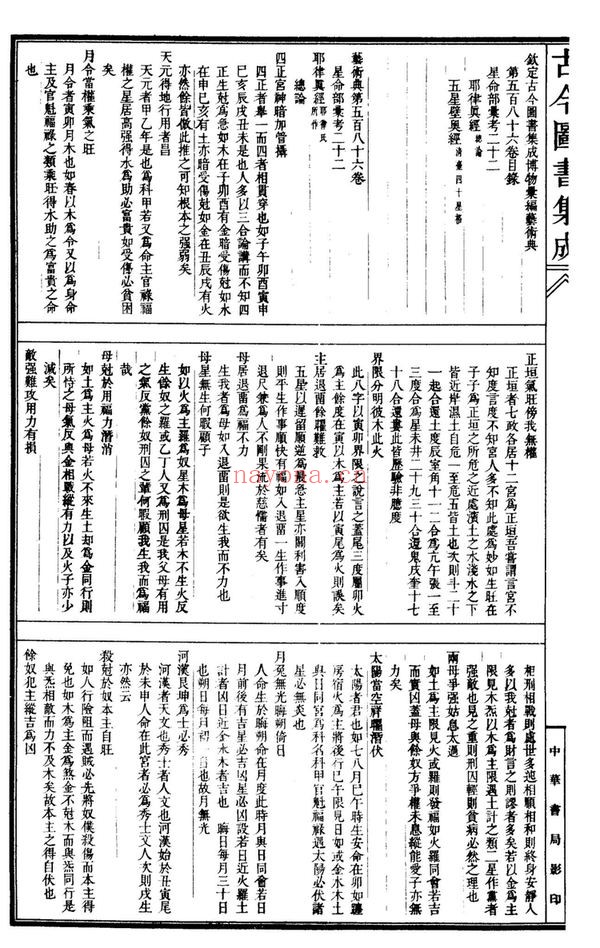 古今圖書集成
欽定古今圖書集成博物彙編藝術典
第五百八十六卷目錄
星命部彙考二十二
耶律真經 總論
五星壁奧經
藝術典第五百八十六卷
星命部彙考二十二
耶律真經
總論
四正宮神暗加管攝
四正者舉一而四者相貫穿也如子午卯酉寅申
巳亥辰戌丑未是也人多以三合論講而不知四
正生尅為急如木在子卯酉有金暗受傷尅如水
在申巳亥有土亦暗受傷尅如金在丑辰戌有火
亦然餘皆倣此推之可知根本之强弱矣
天元得地行用者昌
天元者甲乙年是也為科甲若又為命主官祿福
權之星居高强得水為助必富貴如受傷必貧困
矣
月令當權乘氣之旺
月令者寅卯月木也如春以木為令又以為身命
主及官魁福祿之類乘旺得水助之為富貴之命
也
正垣氣旺傍我無權
正垣者七政各居十二宮為正垣吾嘗謂言宮不
知度言度不知宮人多不知此處為妙如生旺在
子子為正垣之所危之近處濱土之水淺水之下
皆近岸濕土自危一至危五皆土也次則斗二十
一起合還土度辰室角十一二合為亢午張一至
三度合為星未井二十九三十合還鬼戌奎十七
十八合還婁此皆歷驗非臆度
界限分明彼木此火
此八字以寅卯界限而說言之蓋尾三度屬卯火
為主餘度在寅以木為主若以寅尾為火則誤矣
主居退留餘曜難救
五星以遲留順逆為緩急主星亦關利害入順度
則平生作事順快有福如入退留一生作事進寸
退尺兼為人不剛果流於慈懦者有矣
母居退留為福不力
生我者為母如入退留則是欲生我而不力也
母星無生何暇顧子
如以火為主羅為奴星木為母星若木不生火反
生餘奴之羅或乙丁人又為刑囚是我父母有用
之氣反黨餘奴刑囚之輩何暇顧我生我而為福
哉
母尅於用福力潛消
如土為主火為母若火不來生土却為金同行則
所恃之母氣反與金相戰縱有力以及火子亦少
減矣
敵强難攻用力有損
相刑相戰則處世多迍相順相和則終身安靜人
多以我尅者為財言之則謬者多矣若以金為主
限見木炁以木為主限遇土計之類二星作黨者
强敵也見之重則刑囚輕則貧病必然之理也
兩母爭强姑息太過
如土為主限見火或羅則發福如火羅同會若吉
而實凶蓋母與餘奴方爭權未息縱能愛子亦無
力矣
太陽當空祥曜潛伏
太陽者君也如七八月巳午時生安命在卯如躔
房宿火為主將後行巳午限見日如或金水木土
與日同宮為科名科甲官魁福祿遇太陽必伏諸
星必無炎也
月兔無光晦朔倚日
人命生於晦朔命在月度此時月與日同會若日
月前後有吉星必吉凶星必凶設若日近火羅土
計者凶日近金水木者吉也 晦日每月三十日
也朔日每月初一日也故月無光
河漢艮坤為士必秀
河漢者天文也秀士者人文也河漢始於丑寅尾
於未申人命在此宮者必為秀士文人次則戌生
亦然云
殺尅於奴本主自旺
如人行險阻而遇賊必先將奴僕殺傷而本主得
免也如木為主金為煞金不尅木而與炁同行是
與炁相敵而力不及木矣故本主之得自伏也
餘奴犯主縱吉為凶
中華書局影印
nayona.cn